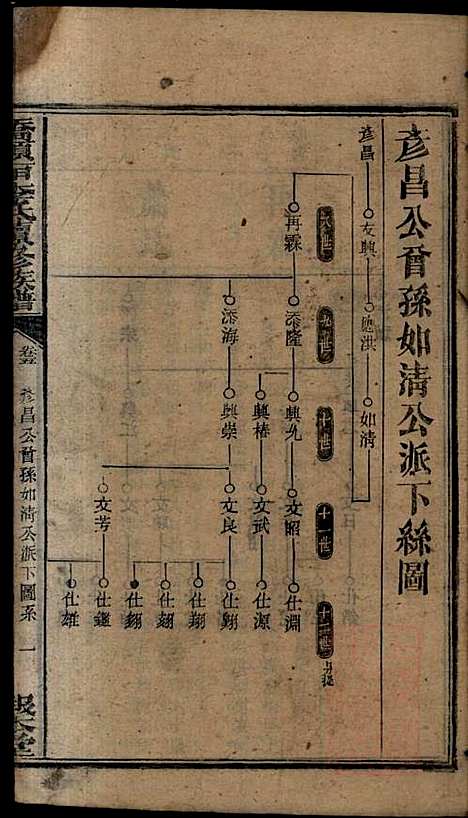 彦昌公曾孫如清公派下絲圖
彦昌
友興
應洪
如清
八世
九世
十世
十一世
十二世
再霖
添隆
添海
興九
興椿
興崇
文昭
文武
文良
文芳
仕淵
仕源
仕翱
仕翔
仕翶
仕鑑
仕雄
氏續修族譜
卷五
彦昌公曾孫如清公派下圖系
一
報本堂